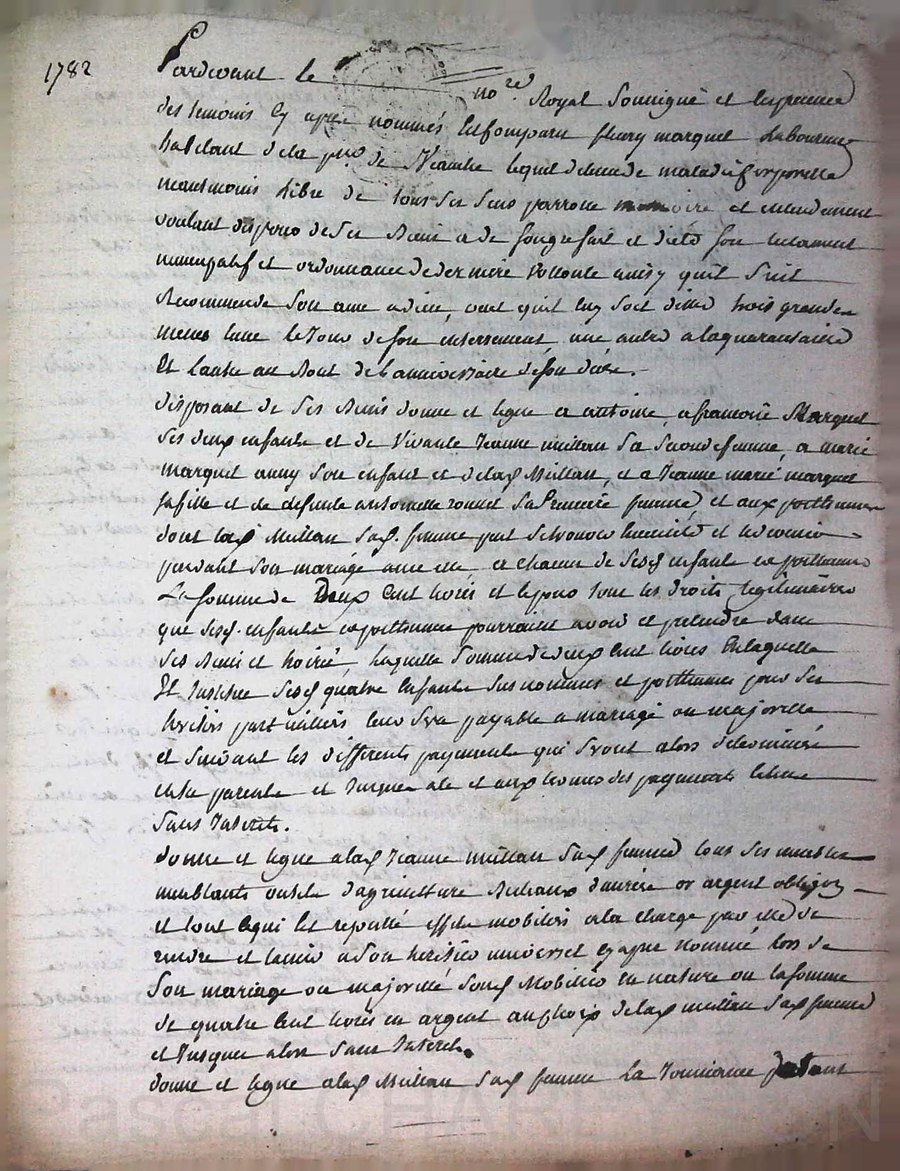 1782
Pardevant le no.re Royal Soussigné et en presence
des temoins cy apres nommés est comparu fleury marquet Laboureur
habitant de la p.sse de lequel detenu de maladie corporelle
neantmoins libre de tous ses sens parrolle memoire et entendement
voulant disposer de ses biens a de son gré fait et dicté son testament
nuncupatif et ordonnance de derniere vollonté ainsy quil suit
Recommende son ame a dieu, veut quil luy soit dittes trois grandes
messes lune le Jour de son enterrement, une autre a la quarantaine
Et lautre au bout de lanniversaire de son décés.
disposant de ses biens donne et legue a antoine, a francoise Marquet
ses deux enfants et de vivante Jeanne meillan sa seconde femme, a marie
marquet aussy son enfant et de lad. Meillan, et a Jeanne marie marquet
sa fille et de defunte antoinette sa premiere femme, et aux posthumes
dont lad. Meillan sad. femme peut se trouver enceinte et le devenir
pendant son mariage avec elle a chacun de sesd. enfants et posthumes
La somme de Deux Cent livres et ce pour tous les droits legitimaires
que sesd. enfants et posthumes pourraient avoir et pretendre dans
ses biens et hoirie, laquelle somme de deux cent livres En laquelle
Il Institue sesd. quatre Enfants susnommés et posthumes pour ses
heritiers particuliers leur sera payable a mariage ou majorité
et suivant les differents payements qui seront alors determinés
entre parents et Jusques a ce et aux termes des payements
Sans Interets.
donne et legue a lad. Jeanne meillan sad. femme tous ses meubles
meublants outils dagriculture Bestiaux denrées or argent obligaõns
et tout ce qui est reputté effets mobiliers a la charge par elle de
rendre et laisser a son heritier universel cy apres nommé lors de
son mariage ou majorité sond. Mobilier en nature ou la somme
de quatre cent livres en argent au choix de lad. meillan sad. femme
et Jusques alors sans Interets.
donne et legue a lad. Meillan sad. femme La Jouissance pendant
Pascal CHA